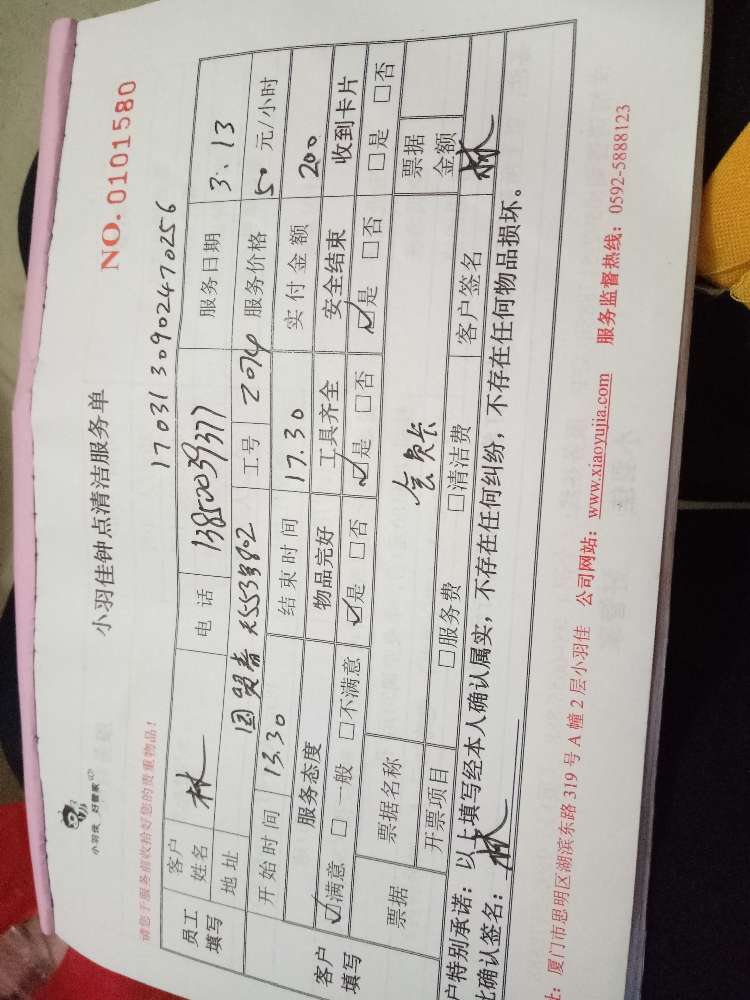 小羽佳 好管家
小羽佳钟点清洁服务单
NO. 0101580
请您于服务前收拾好您的贵重物品!
1703130902470256
员工填写
客户姓名 林 电话 13850039377 服务日期 3.13
地址 工号 2074 服务价格 50 元/小时
开始时间 13.30 结束时间 17.30 实付金额 200
客户填写
服务态度 物品完好 工具齐全 安全结束 收到卡片
☑满意 □一般 □不满意 ☑是 □否 ☑是 □否 ☑是 □否 □是 □否
票据 票据名称 会员卡 票据金额
开票项目 □服务费 □清洁费 客户签名 林
户特别承诺:以上填写经本人确认属实,不存在任何纠纷,不存在任何物品损坏。
此确认签名:林
址:厦门市思明区湖滨东路 319 号 A 幢 2 层小羽佳 公司网站:www.xiaoyujia.com 服务监督热线:0592-5888123